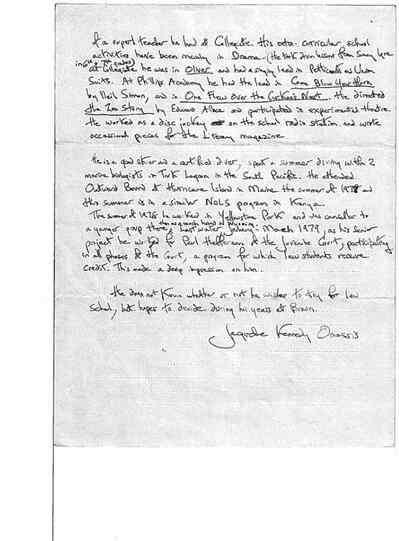 of a expert teacher he had at Collegiate. His extra-curricular school
activities have been mainly in Drama (He took drum lessons from Sandy
in 6th + 7th grades)
at Collegiate he was in Oliver and had a singing lead in Petticoats + Union
Suits. At Phillips Academy he had the lead in Come Blow Your Horn
by Neil Simon, was in One Flew Over the Cuckoo's Nest. He directed
the Zoo Story by Edward Albee and participated in experimental theatre.
He worked as a disc jockey on the school radio station and wrote
occasional pieces for the Literary magazine.
He is a good skier and a certified diver, spent a summer diving with 2
marine biologists in Truk Lagoon in the South Pacific. He attended
Outward Bound at Hurricane Island in Maine the summer of 197 and
this summer is in a similar NOLS program in Kenya.
The summer of 1978 he worked in Yellowstone Park and was counsellor to
a younger group there,
March 1979, as his senior
project he worked for Paul at the Juvenile Court, participating
in all phases of the Court, a program for which law students receive
credit. This made a deep impression on him.
He does not know whether or not he wishes to try for law
school, but hopes to decide during his years at Brown.
Jacqueline Kennedy Onassis